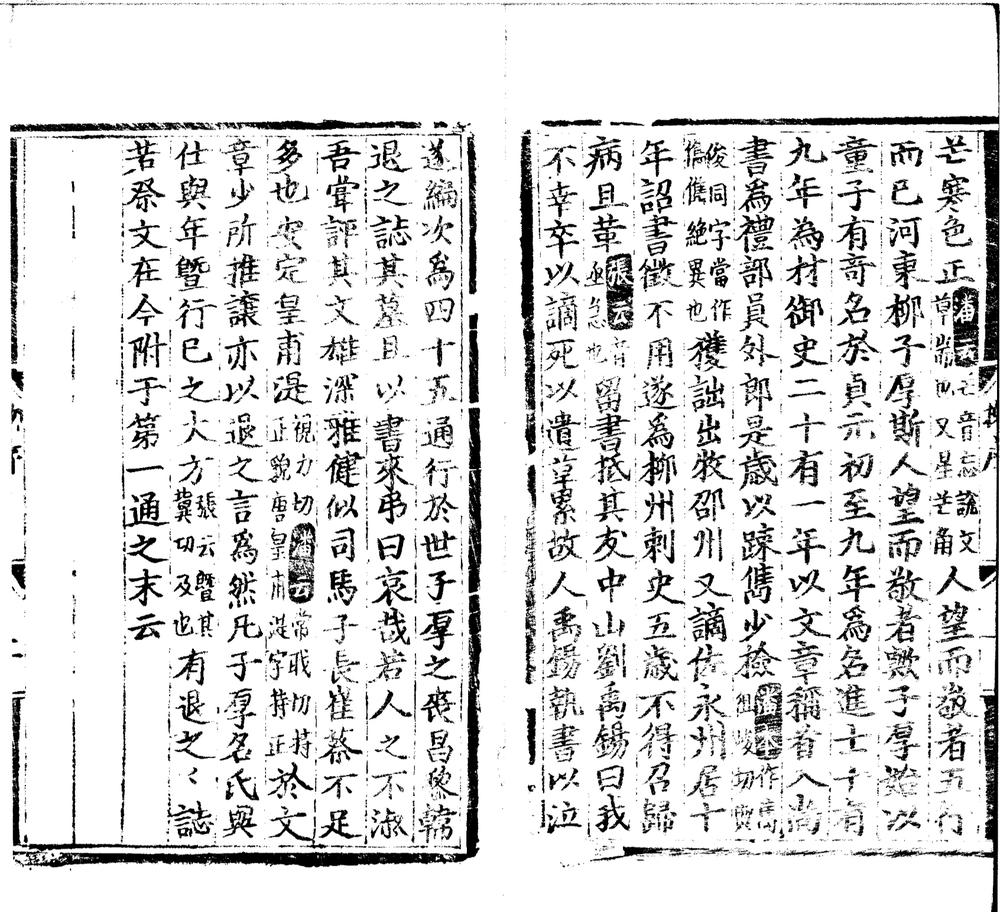 芒寒色正潘云芒音忘說文草耑也又星芒角人望而敬者五行
而已河東柳子厚斯人望而敬者歟子厚始以
童子有奇名於貞元初至九年爲名進士十有
九年為材御史二十有一年以文章稱首入尚
書爲禮部員外郎是歲以踈雋少撿潘云作雋徂峻切與
俊同字當作㑺儁絶異也獲詘出牧邵州又謫佐永州居十
年詔書徵不用遂爲柳州刺史五歲不得召歸
病且革張云音亟急也留書抵其友中山劉禹錫曰我
不幸卒以謫死以遺草累故人禹錫執書以泣
遂編次爲四十五通行於世子厚之喪昌黎韓
退之誌其墓且以書來弔曰哀哉若人之不淑
吾嘗評其文雄深雅健似司馬子長崔蔡不足
多也安定皇甫湜潘云常職切持正視力切正貌唐皇甫湜字持正於文
章少所推讓亦以退之言爲然凡子厚名氏與
仕與年曁行己之大方張云曁其冀切及也有退之之誌
若祭文在今附于第一通之末云